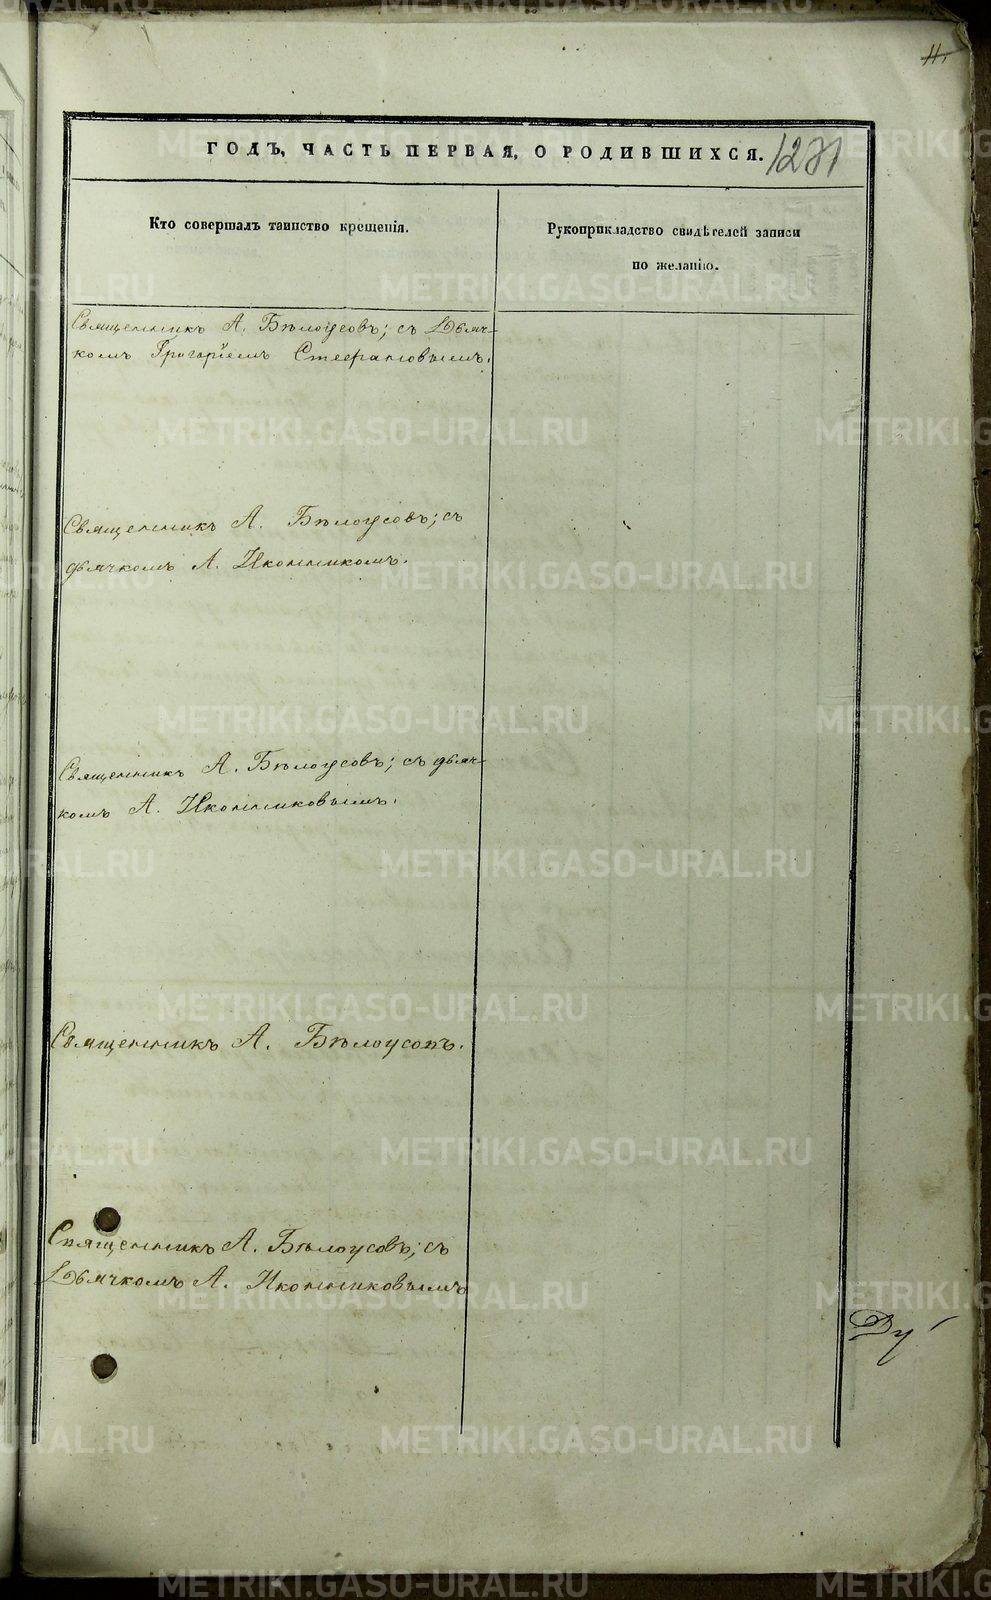 11.
ГОДЪ, ЧАСТЬ ПЕРВАЯ, О РОДИВШИХСЯ.
Кто совершалъ таинство крещенія.
Рукоприкладство свидѣтелей записи
по желанію.
Священникъ А. Бѣлоусовъ; съ Дьяч-
комъ Григоріемъ Стефановымъ.
Священникъ А. Бѣлоусовъ; съ
дьячкомъ А. Иконникомъ.
Священникъ А. Бѣлоусовъ; съ дьяч-
комъ А. Иконниковымъ.
Священникъ А. Бѣлоусовъ.
Священникъ А. Бѣлоусовъ; съ
Дьячкомъ А. Иконниковымъ
METRIKI.GASO-URAL.RU